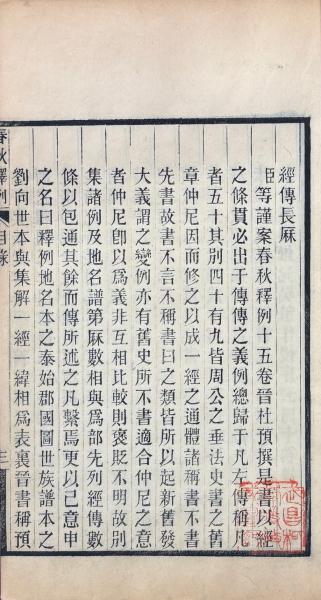 經傳長厤
臣等謹案春秋釋例十五卷晉杜預撰是書以經
之條貫必出于傳傳之義例總歸于凡左傳稱凡
者五十其别四十有九皆周公之垂法史書之舊
章仲尼因而修之以成一經之通體諸稱書不書
先書故書不言不稱書曰之類皆所以起新舊發
大義謂之變例亦有舊史所不書適合仲尼之意
者仲尼卽以為義非互相比較則褒貶不明故别
集諸例及地名譜第厤數相與為部先列經傳數
條以包通其餘而傳所述之凡繫焉更以己意申
之名曰釋例地名本之泰始郡國圖世族譜本之
劉向世本與集解一經一緯相為表裏晉書稱預
春秋釋例
目錄
三